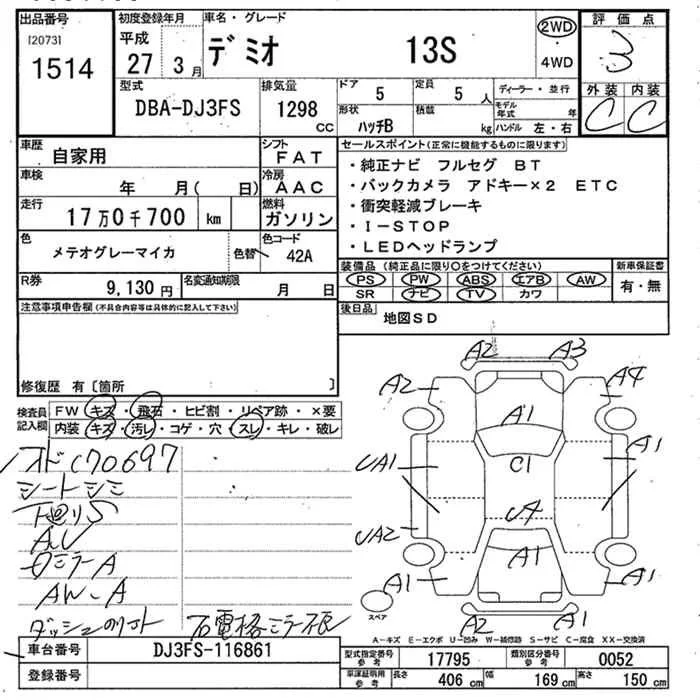 出品番号
[2073]
1514
初度登録年月
平成
27 3 月
車名・グレード
デミオ 13S
2WD
・
4WD
評価点
3
外装 内装
C C
型式
DBA-DJ3FS
排気量
1298 CC
ドア 5
定員 5 人
形状 ハッチB
積載 kg
ディーラー・並行
モデル年式 年
ハンドル 左・右
車歴
自家用
シフト
FAT
車検
年 月( 日)
冷房
AAC
走行
17万0千700 km
燃料
ガソリン
色
メテオグレーマイカ
色替
色コード
42A
R券
9,130 円
名変通知期限
月 日
セールスポイント(正常に機能するものに限ります)
・純正ナビ フルセグ BT
・バックカメラ アドキー×2 ETC
・衝突軽減ブレーキ
・I-STOP
・LEDヘッドランプ
装備品(純正品に限り○をつけてください)
PS PW ABS エアB AW
SR ナビ TV カワ
新車保証書
有・無
後日品
地図SD
注意事項申告欄(不具合内容等は具体的に記入して下さい)
修復歴 有〔箇所 〕
検査員
記入欄
FW キズ・飛石・ヒビ割・リペア跡・×要
内装 キズ・汚レ・コゲ・穴・スレ・キレ・破レ
170697
シートシミ
下廻りS
AW-A
A2 A3
A2 A4
A1
UA1 C1 A1
UA2 A1
A1 A1
A2 A1
スペア
A-キズ E-エクボ U-凹み W-補修跡 S-サビ C-腐食 XX-交換済
車台番号
DJ3FS-116861
登録番号
型式指定番号
参考
17795
類別区分番号
参考
0052
車庫証明用
参考
長さ 406 cm
幅 169 cm
高さ 150 cm